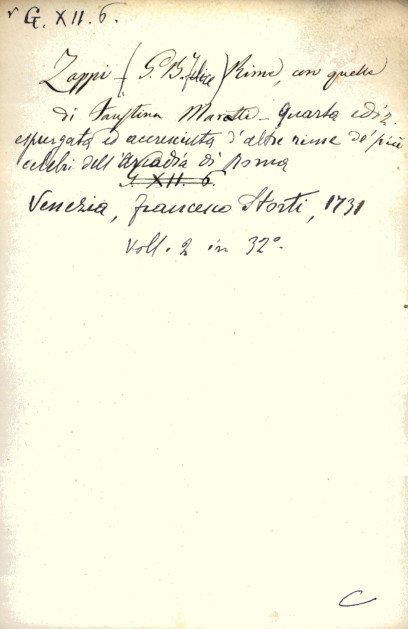 v G. XII. 6.
Zappi (G. B. Felice) Rime, con quelle
di Faustina Maratti - Quarta ediz.
espurgata ed accresciuta d'altre rime de' più
celebri dell'Arcadia di Roma
G XII. 6.
Venezia, Francesco Storti, 1731
Voll. 2 in 32°.
C